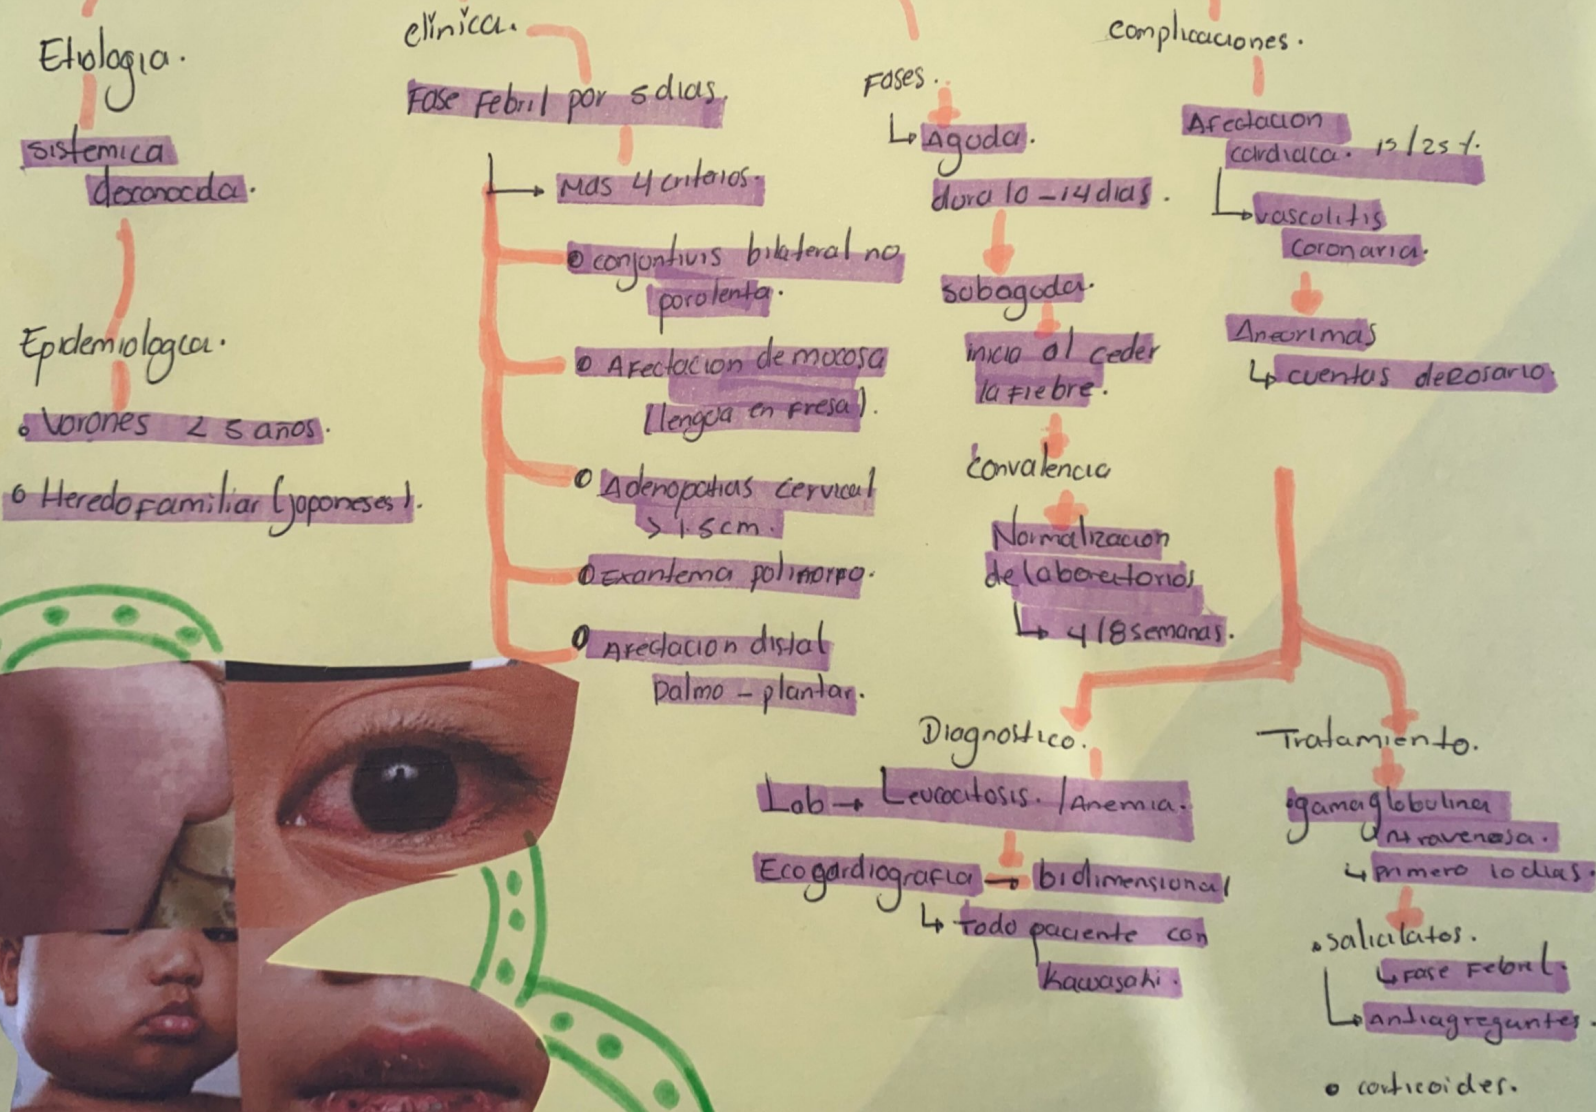 Etiologia.
sistemica
desconocida.
Epidemiologia.
Varones < 5 años.
Heredofamiliar (japoneses).
clinica.
Fase Febril por 5 dias.
Mas 4 criterios.
conjontivis bilateral no
porolenta.
Afectacion de mucosa
(lengua en fresa).
Adenopatias cervical
> 1.5cm.
Exantema polimorfo.
Afectacion distal
palmo - plantar.
Fases.
Aguda.
dura 10 - 14 dias.
subaguda.
inicia al ceder
la fiebre.
convalencia
Normalizacion
de laboratorios
4/8 semanas.
complicaciones.
Afectacion
cardiaca. 15/25 %.
vascolitis
coronaria.
Aneorimas
cuentas de rosario.
Diagnostico.
Lab → Leucocitosis. / Anemia.
Ecogardiografia → bidimensional
todo paciente con
kawasaki.
Tratamiento.
gamaglobulina
intravenosa.
primero 10 dias.
salicilatos.
Fase Febril.
antiagregantes.
corticoides.